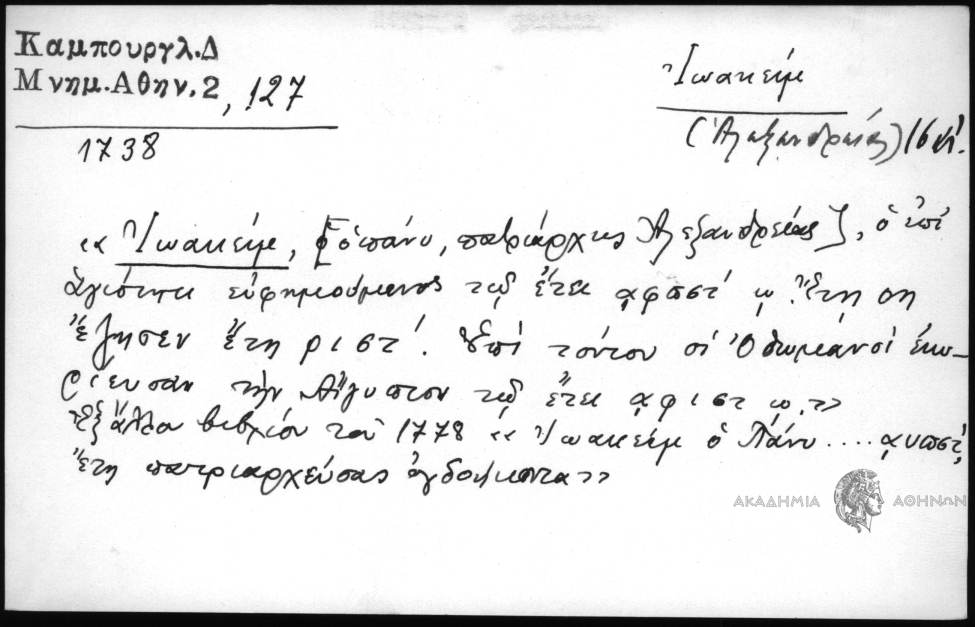 Καμπουργλ.Δ
Μνημ.Αθην.2, 127
1738
Ἰωακείμ
(Ἀλεξανδρείας) 16
«Ἰωακείμ, [ὁ πάνυ, πατριάρχης Ἀλεξανδρείας], ὁ ἐπὶ
ἁγιότητι εὐφημούμενος τῷ ἔτει αφπστ ῳ. Ἔτη
ἔζησεν ἔτη ριστ΄. Ἐπὶ τούτου οἱ Ὀθωμανοὶ ἐκυ-
ρίευσαν τὴν Αἴγυπτον τῷ ἔτει αφιστ ῳ.»
Ἐξ ἄλλου βιβλίου τοῦ 1778 «Ἰωακείμ ὁ Πάνυ.... αυπστ,
ἔτη πατριαρχεύσας ὀγδοήκοντα»
ΑΚΑΔΗΜΙΑ ΑΘΗΝΩΝ